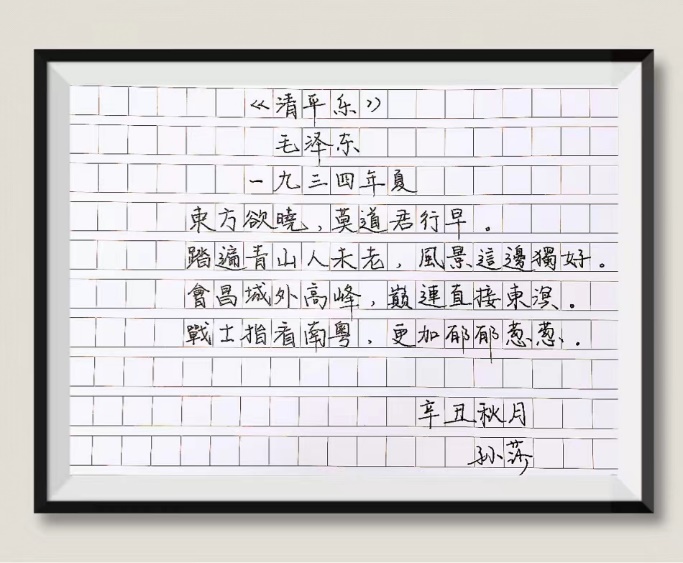 《清平乐》
毛泽东
一九三四年夏
東方欲曉，莫道君行早。
踏遍青山人未老，風景這邊獨好。
會昌城外高峰，巔連直接東溟。
戰士指看南粵，更加郁郁葱葱。
辛丑秋月
孙莎